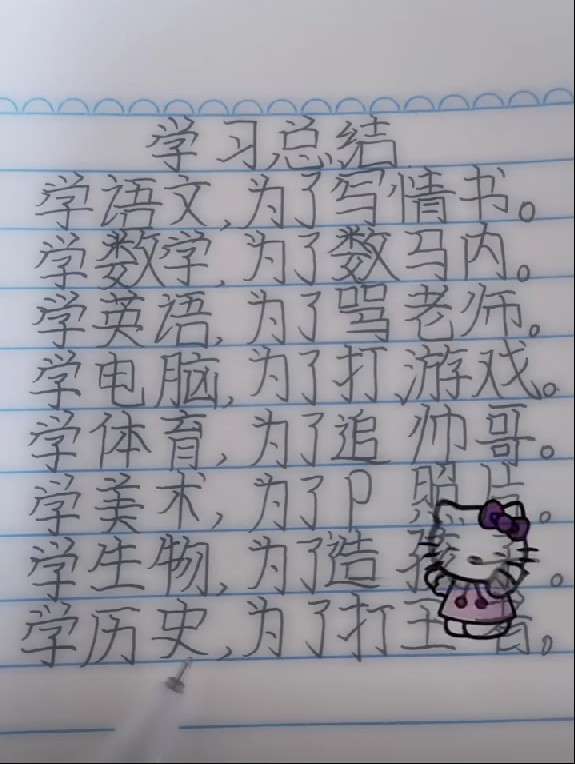 学习总结
学语文,为了写情书。
学数学,为了数马内。
学英语,为了骂老师。
学电脑,为了打游戏。
学体育,为了追帅哥。
学美术,为了P照片。
学生物,为了造孩。
学历史,为了打王者。